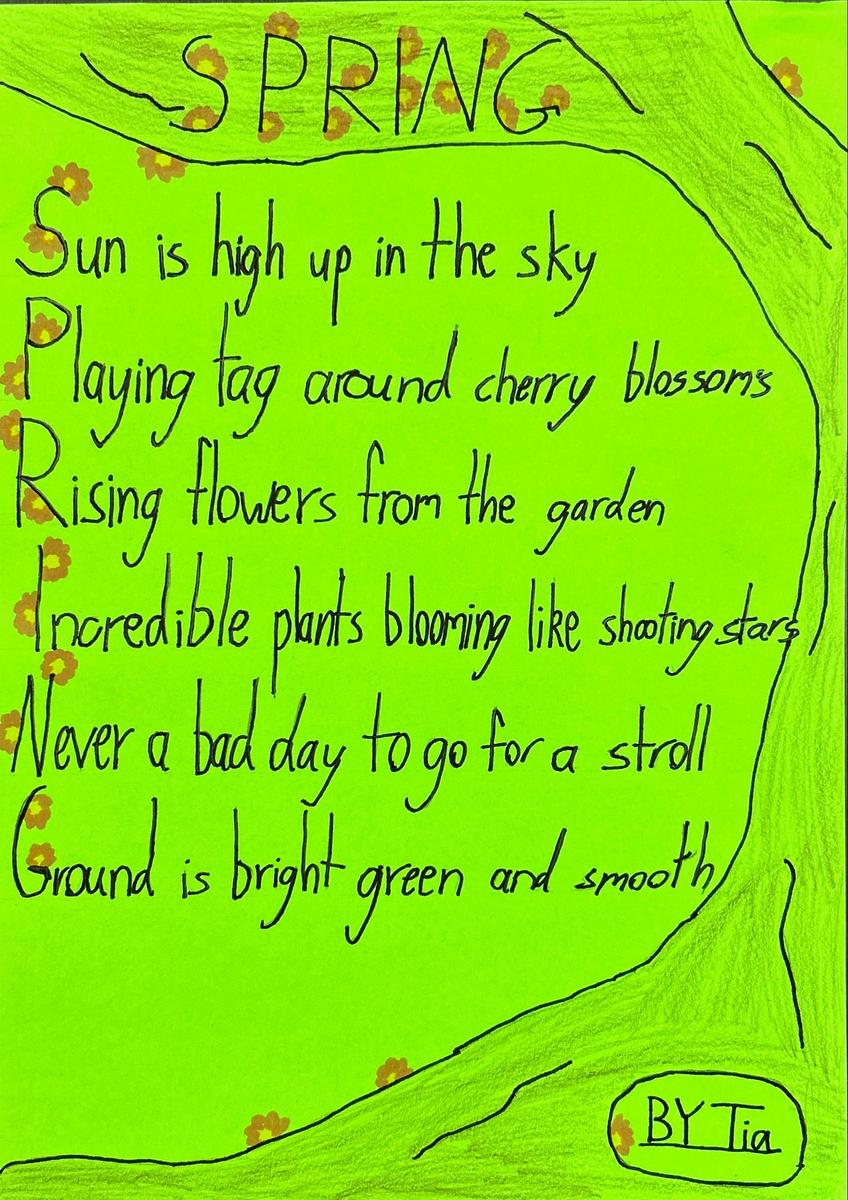 SPRING
Sun is high up in the sky
Playing tag around cherry blossoms
Rising flowers from the garden
Incredible plants blooming like shooting stars
Never a bad day to go for a stroll
Ground is bright green and smooth
BY Tia